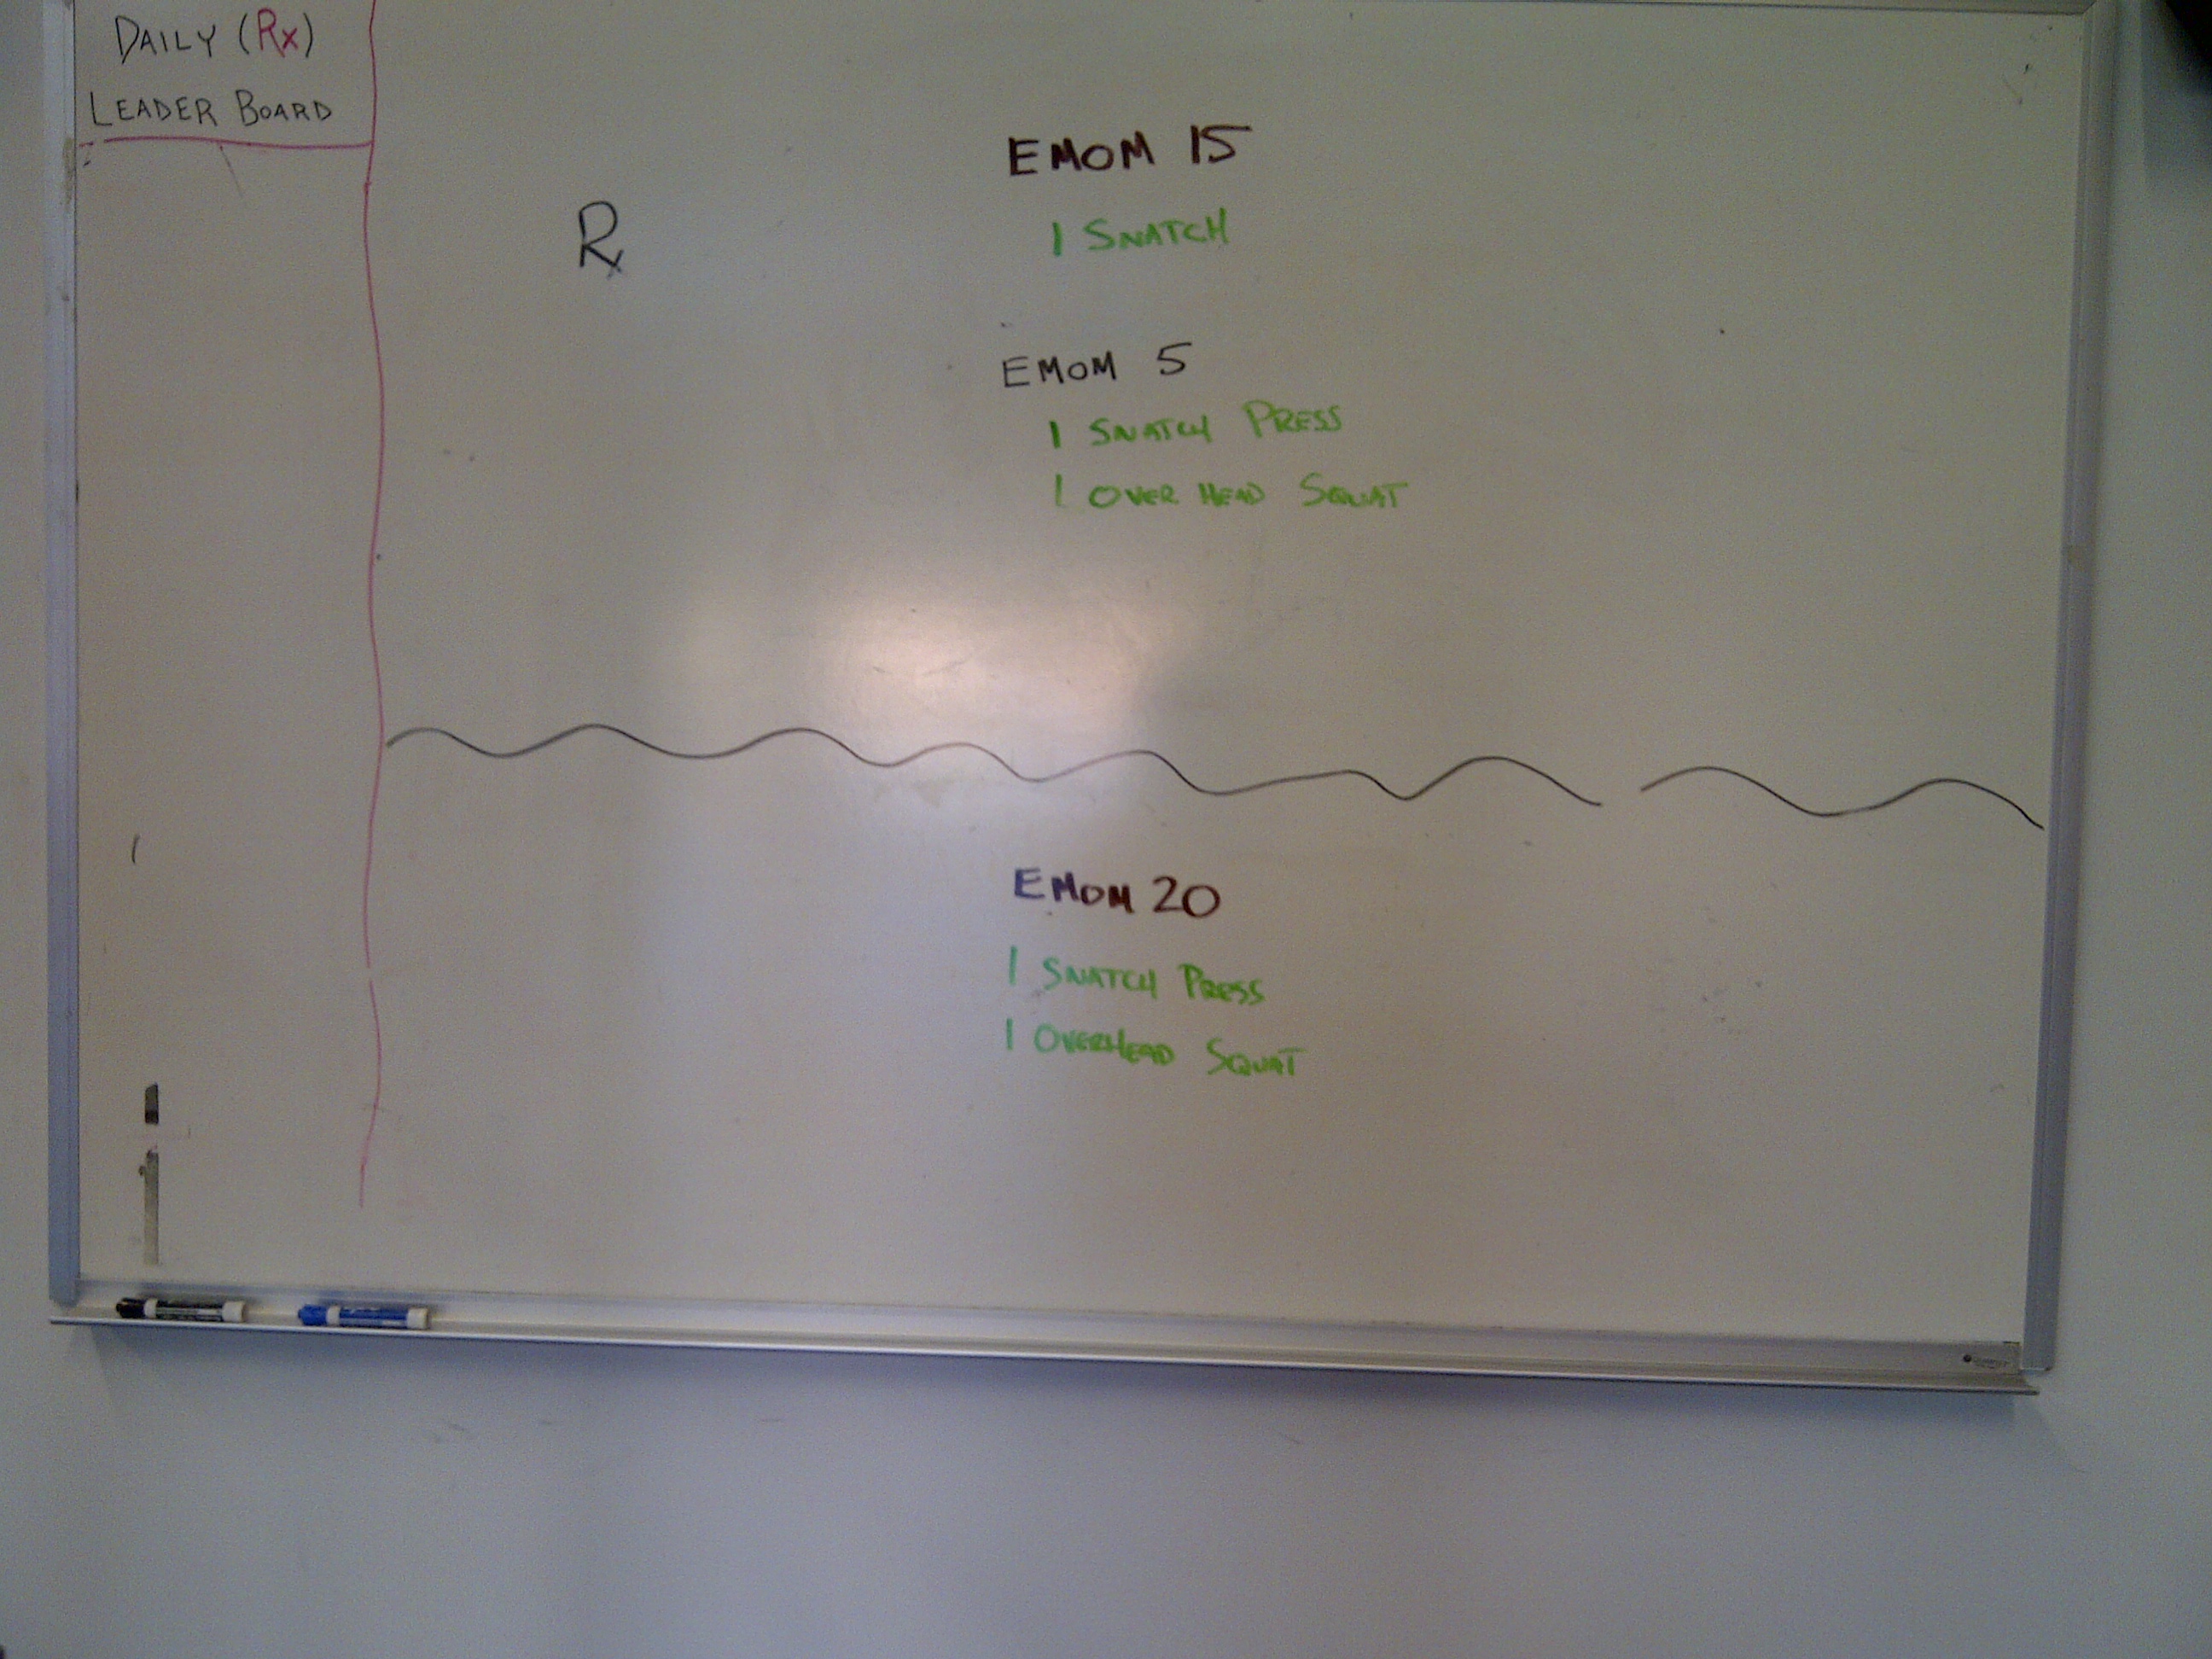 DAILY (Rx)
LEADER BOARD
Rx
EMOM 15
1 SNATCH
EMOM 5
1 SNATCH PRESS
1 OVER HEAD SQUAT
EMOM 20
1 SNATCH PRESS
1 OVERHEAD SQUAT